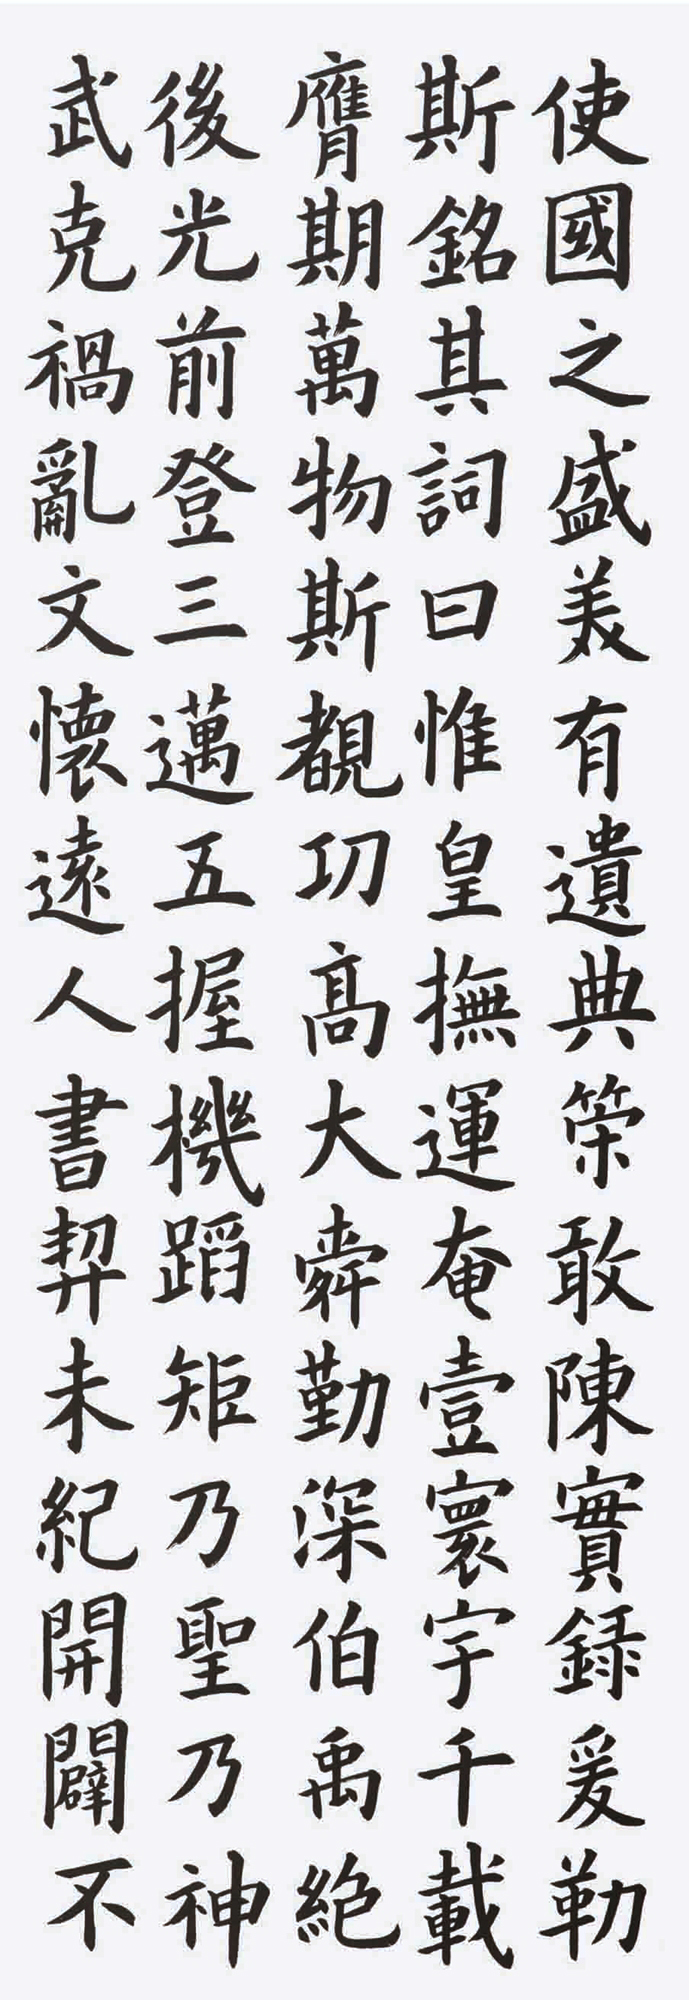 使國之盛美有遺典策敢陳實録爰勒
斯銘其詞曰惟皇撫運奄壹寰宇千載
膺期萬物斯覩功高大舜勤深伯禹絶
後光前登三邁五握機蹈矩乃聖乃神
武克禍亂文懷遠人書契未紀開闢不